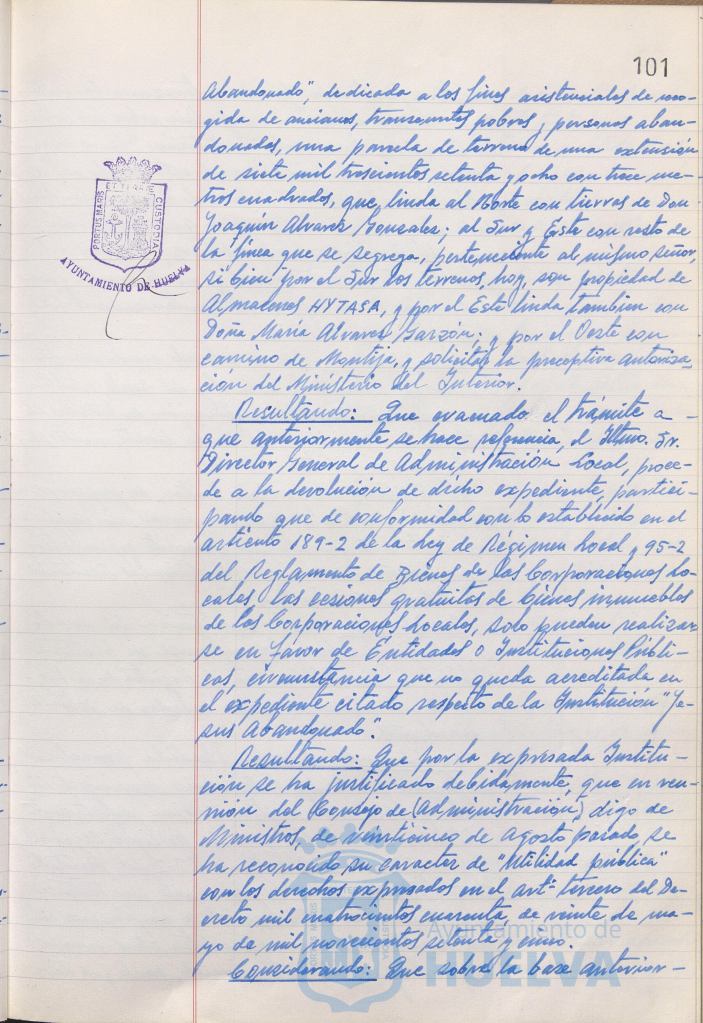 101
Abandonado", dedicada a los fines asistenciales de reco-
gida de ancianos, transeuntes pobres y personas aban-
donadas, una parcela de terreno de una extensión
de siete mil trescientos setenta y ocho con trece me-
tros cuadrados, que linda al Norte con tierras de Don
Joaquín Alvarez Gonzalez; al Sur y Este con resto de
la finca que se segrega, perteneciente al mismo señor,
si bien por el Sur los terrenos, hoy, son propiedad de
Almacenes HYTASA, y por el Este linda tambien con
Doña María Alvarez Garzón; y por el Oeste con
camino de Montija, y solicitar la preceptiva autoriza-
ción del Ministerio del Interior.
Resultando: Que evacuado el trámite a
que anteriormente se hace referencia, el Iltmo. Sr.
Director General de Administración Local, proce-
de a la devolución de dicho expediente, partici-
pando que de conformidad con lo establecido en el
artículo 189-2 de la Ley de Régimen Local y 95-2
del Reglamento de Bienes de las Corporaciones Lo-
cales las cesiones gratuitas de bienes inmuebles
de las Corporaciones Locales, solo pueden realizar
se en favor de Entidades o Instituciones Públi-
cas, circunstancia que no queda acreditada en
el expediente citado respecto de la Institución "Je-
sus Abandonado".
Resultando: Que por la expresada Institu-
ción se ha justificado debidamente, que en reu-
nión del Consejo de (Administración) digo de
Ministros, de veinticinco de Agosto pasado se
ha reconocido su caracter de "Utilidad pública"
con los derechos expresados en el artº tercero del De-
creto mil cuatrocientos cuarenta, de veinte de ma-
yo de mil novecientos setenta y cinco.
Considerando: Que sobre la base anterior-
PORTUS MARIS ET TERRAE CUSTODIA
AYUNTAMIENTO DE HUELVA
Ayuntamiento de
HUELVA